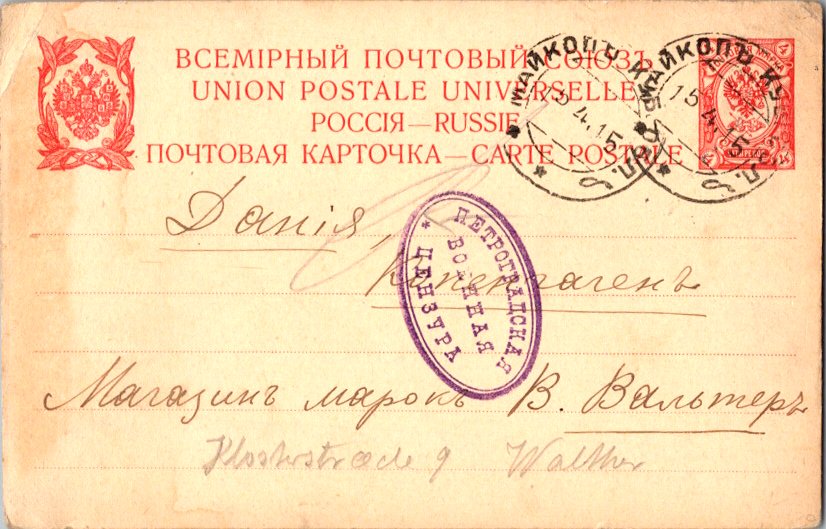 ВСЕМІРНЫЙ ПОЧТОВЫЙ СОЮЗЪ
UNION POSTALE UNIVERSELLE
РОССІЯ—RUSSIE
ПОЧТОВАЯ КАРТОЧКА—CARTE POSTALE
МАЙКОПЪ КУБ. ОБЛ.
15 4 15
МАЙКОПЪ КУБ. ОБЛ.
15 4 15
4
Данія
ПЕТРОГРАДСКАЯ
ВОЕННАЯ
ЦЕНЗУРА
Копенгагенъ
Магазинъ марокъ В. Вальтеръ
Klosterstræde 9 Walther